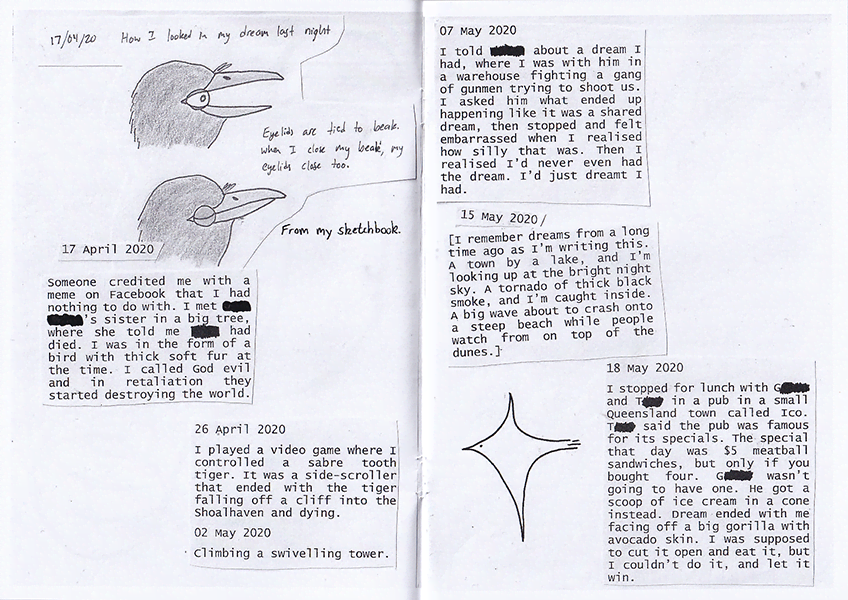 17/04/20 How I looked in my dream last night
Eyelids are tied to beak.
When I close my beak, my
eyelids close too.
From my sketchbook.
17 April 2020
Someone credited me with a
meme on Facebook that I had
nothing to do with. I met
's sister in a big tree,
where she told me had
died. I was in the form of a
bird with thick soft fur at
the time. I called God evil
and in retaliation they
started destroying the world.
26 April 2020
I played a video game where I
controlled a sabre tooth
tiger. It was a side-scroller
that ended with the tiger
falling off a cliff into the
Shoalhaven and dying.
02 May 2020
Climbing a swivelling tower.
07 May 2020
I told about a dream I
had, where I was with him in
a warehouse fighting a gang
of gunmen trying to shoot us.
I asked him what ended up
happening like it was a shared
dream, then stopped and felt
embarrassed when I realised
how silly that was. Then I
realised I'd never even had
the dream. I'd just dreamt I
had.
15 May 2020/
[I remember dreams from a long
time ago as I'm writing this.
A town by a lake, and I'm
looking up at the bright night
sky. A tornado of thick black
smoke, and I'm caught inside.
A big wave about to crash onto
a steep beach while people
watch from on top of the
dunes.]
18 May 2020
I stopped for lunch with G
and T in a pub in a small
Queensland town called Ico.
T said the pub was famous
for its specials. The special
that day was $5 meatball
sandwiches, but only if you
bought four. G wasn't
going to have one. He got a
scoop of ice cream in a cone
instead. Dream ended with me
facing off a big gorilla with
avocado skin. I was supposed
to cut it open and eat it, but
I couldn't do it, and let it
win.